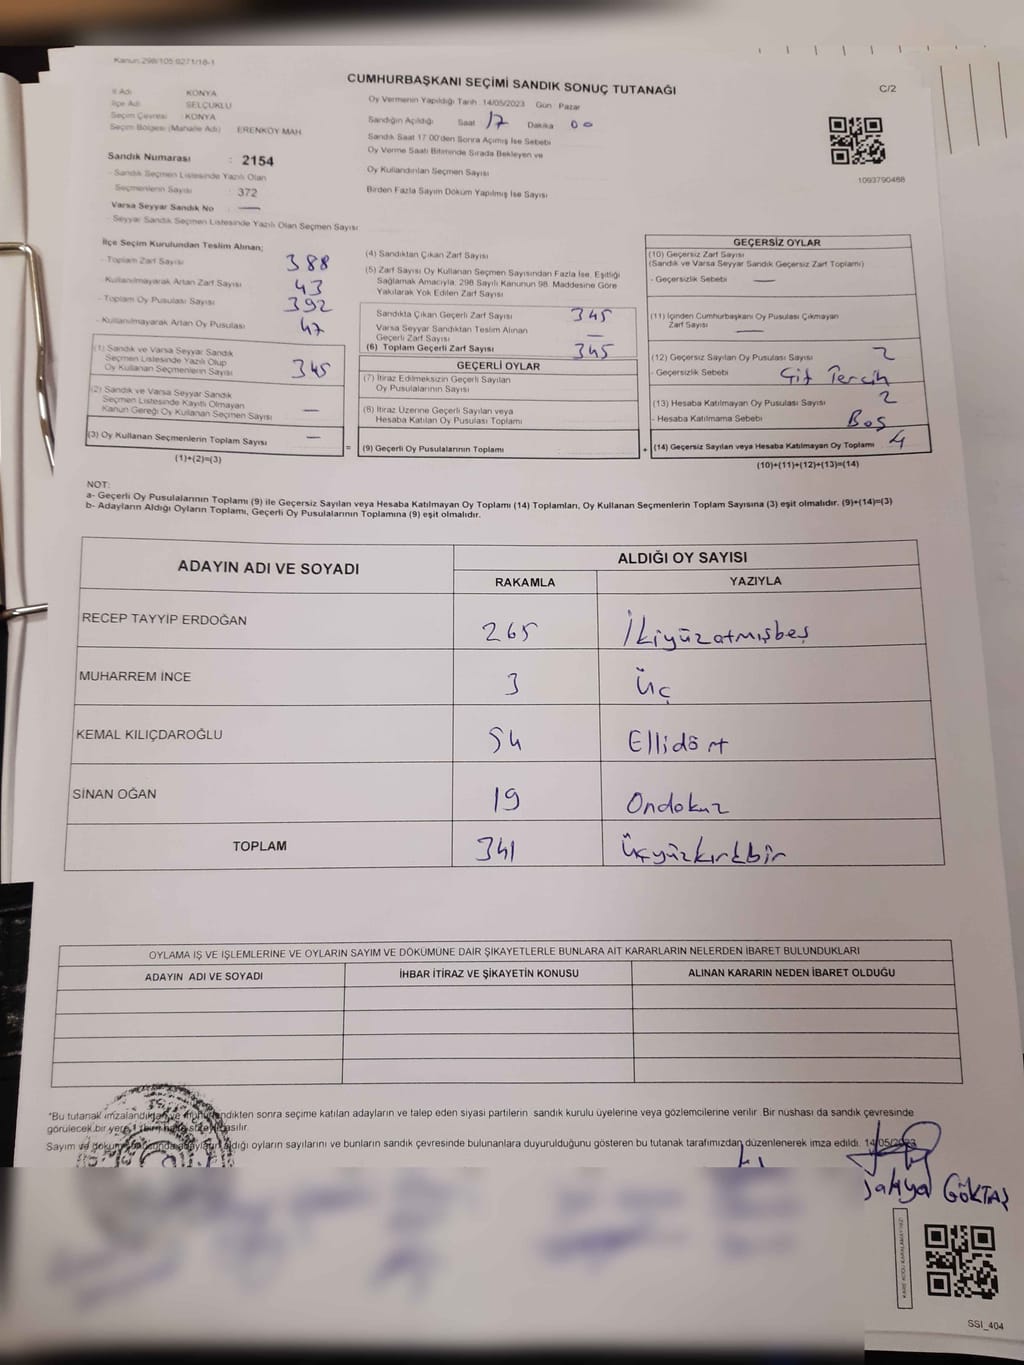 Kanun:298/105:0271/18-1
CUMHURBAŞKANI SEÇİMİ SANDIK SONUÇ TUTANAĞI
C/2
İl Adı KONYA
İlçe Adı SELÇUKLU
Seçim Çevresi : KONYA
Seçim Bölgesi (Mahalle Adı) ERENKÖY MAH.
Sandık Numarası : 2154
- Sandık Seçmen Listesinde Yazılı Olan
Seçmenlerin Sayısı : 372
Varsa Seyyar Sandık No —
- Seyyar Sandık Seçmen Listesinde Yazılı Olan Seçmen Sayısı
Oy Vermenin Yapıldığı Tarih :14/05/2023 Gün Pazar
Sandığın Açıldığı Saat 17 Dakika 00
Sandık Saat 17:00'den Sonra Açılmış İse Sebebi
Oy Verme Saati Bitiminde Sırada Bekleyen ve
Oy Kullandırılan Seçmen Sayısı
Birden Fazla Sayım Döküm Yapılmış İse Sayısı
1093790488
İlçe Seçim Kurulundan Teslim Alınan;
- Toplam Zarf Sayısı 388
- Kullanılmayarak Artan Zarf Sayısı 43
- Toplam Oy Pusulası Sayısı 392
- Kullanılmayarak Artan Oy Pusulası 47
(1) Sandık ve Varsa Seyyar Sandık
Seçmen Listesinde Yazılı Olup
Oy Kullanan Seçmenlerin Sayısı 345
(2) Sandık ve Varsa Seyyar Sandık
Seçmen Listesinde Kayıtlı Olmayan
Kanun Gereği Oy Kullanan Seçmen Sayısı —
(3) Oy Kullanan Seçmenlerin Toplam Sayısı —
(1)+(2)=(3)
(4) Sandıktan Çıkan Zarf Sayısı
(5) Zarf Sayısı Oy Kullanan Seçmen Sayısından Fazla İse, Eşitliği
Sağlamak Amacıyla, 298 Sayılı Kanunun 98. Maddesine Göre
Yakılarak Yok Edilen Zarf Sayısı
Sandıkta Çıkan Geçerli Zarf Sayısı 345
Varsa Seyyar Sandıktan Teslim Alınan
Geçerli Zarf Sayısı —
(6) Toplam Geçerli Zarf Sayısı 345
GEÇERLİ OYLAR
(7) İtiraz Edilmeksizin Geçerli Sayılan
Oy Pusulalarının Sayısı
(8) İtiraz Üzerine Geçerli Sayılan veya
Hesaba Katılan Oy Pusulası Toplamı
= (9) Geçerli Oy Pusulalarının Toplamı
GEÇERSİZ OYLAR
(10) Geçersiz Zarf Sayısı
(Sandık ve Varsa Seyyar Sandık Geçersiz Zarf Toplamı)
- Geçersizlik Sebebi —
(11) İçinden Cumhurbaşkanı Oy Pusulası Çıkmayan
Zarf Sayısı —
(12) Geçersiz Sayılan Oy Pusulası Sayısı 2
- Geçersizlik Sebebi Çift Tercih
(13) Hesaba Katılmayan Oy Pusulası Sayısı 2
- Hesaba Katılmama Sebebi Boş
+ (14) Geçersiz Sayılan veya Hesaba Katılmayan Oy Toplamı 4
(10)+(11)+(12)+(13)=(14)
NOT:
a- Geçerli Oy Pusulalarının Toplamı (9) ile Geçersiz Sayılan veya Hesaba Katılmayan Oy Toplamı (14) Toplamları, Oy Kullanan Seçmenlerin Toplam Sayısına (3) eşit olmalıdır. (9)+(14)=(3)
b- Adayların Aldığı Oyların Toplamı, Geçerli Oy Pusulalarının Toplamına (9) eşit olmalıdır.
ADAYIN ADI VE SOYADI
ALDIĞI OY SAYISI
RAKAMLA YAZIYLA
RECEP TAYYİP ERDOĞAN 265 İkiyüzatmışbeş
MUHARREM İNCE 3 Üç
KEMAL KILIÇDAROĞLU 54 Ellidört
SİNAN OĞAN 19 Ondokuz
TOPLAM 341 Üçyüzkırkbir
OYLAMA İŞ VE İŞLEMLERİNE VE OYLARIN SAYIM VE DÖKÜMÜNE DAİR ŞİKAYETLERLE BUNLARA AİT KARARLARIN NELERDEN İBARET BULUNDUKLARI
ADAYIN ADI VE SOYADI İHBAR İTİRAZ VE ŞİKAYETİN KONUSU ALINAN KARARIN NEDEN İBARET OLDUĞU
*Bu tutanak imzalandıktan ve mühürlendikten sonra seçime katılan adayların ve talep eden siyasi partilerin sandık kurulu üyelerine veya gözlemcilerine verilir. Bir nüshası da sandık çevresinde
görülecek bir yere asılır.
Sayım ve oyların sayılarını ve bunların sandık çevresinde bulunanlara duyurulduğunu gösteren bu tutanak tarafımızdan düzenlenerek imza edildi. 14/05/2023
GÖKTAŞ
SSI_404